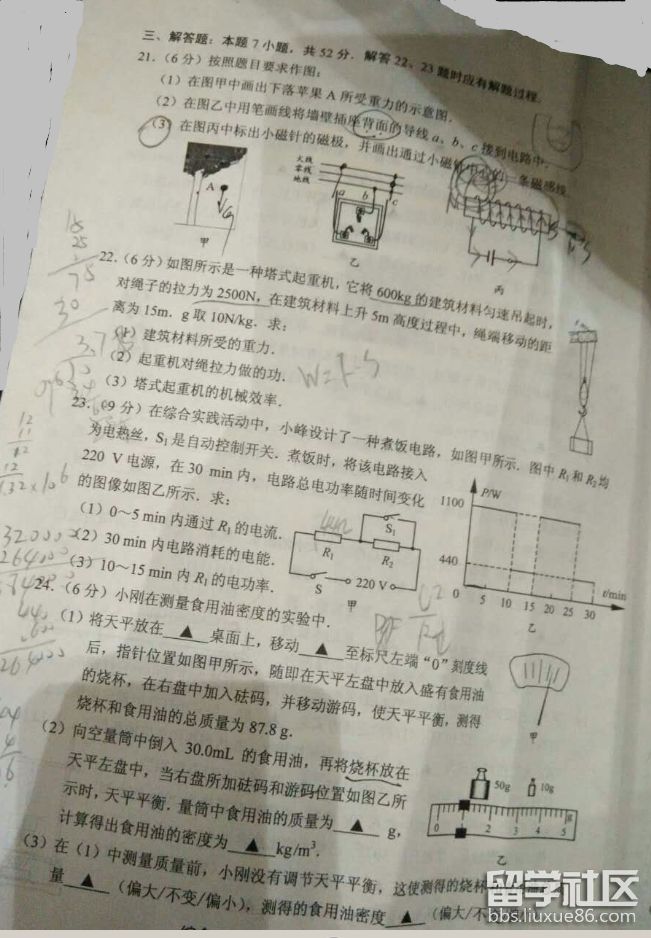 三、解答题:本题7小题,共52分.解答22、23题时应有解题过程.
21.(6分)按照题目要求作图:
(1)在图甲中画出下落苹果A所受重力的示意图.
(2)在图乙中用笔画线将墙壁插座背面的导线a、b、c接到电路中.
(3)在图丙中标出小磁针的磁极,并画出通过小磁针中心的一条磁感线.
火线
零线
地线
A
G
a b c
甲
乙
丙
22.(6分)如图所示是一种塔式起重机,它将600kg的建筑材料匀速吊起时,
对绳子的拉力为2500N,在建筑材料上升5m高度过程中,绳端移动的距
离为15m.g取10N/kg.求:
(1)建筑材料所受的重力.
(2)起重机对绳拉力做的功.
(3)塔式起重机的机械效率.
23.(9分)在综合实践活动中,小峰设计了一种煮饭电路,如图甲所示.图中R₁和R₂均
为电热丝,S₁是自动控制开关.煮饭时,将该电路接入
220 V电源,在30 min内,电路总电功率随时间变化
的图像如图乙所示.求:
(1)0~5 min内通过R₁的电流.
(2)30 min内电路消耗的电能.
(3)10~15 min内R₁的电功率.
S₁
R₁
R₂
S
220 V
甲
P/W
1100
440
0 5 10 15 20 25 30 t/min
乙
24.(6分)小刚在测量食用油密度的实验中.
(1)将天平放在▲桌面上,移动▲至标尺左端“0”刻度线
后,指针位置如图甲所示,随即在天平左盘中放入盛有食用油
的烧杯,在右盘中加入砝码,并移动游码,使天平平衡,测得
烧杯和食用油的总质量为87.8 g.
甲
(2)向空量筒中倒入30.0mL的食用油,再将烧杯放在
天平左盘中,当右盘所加砝码和游码位置如图乙所
示时,天平平衡.量筒中食用油的质量为▲g,
计算得出食用油的密度为▲kg/m³.
50g
10g
0 1 2 3 4 5
g
乙
(3)在(1)中测量质量前,小刚没有调节天平平衡,这使测得的烧杯
量▲(偏大/不变/偏小),测得的食用油密度▲(偏大/不
留学社区
bbs.liuxue86.com